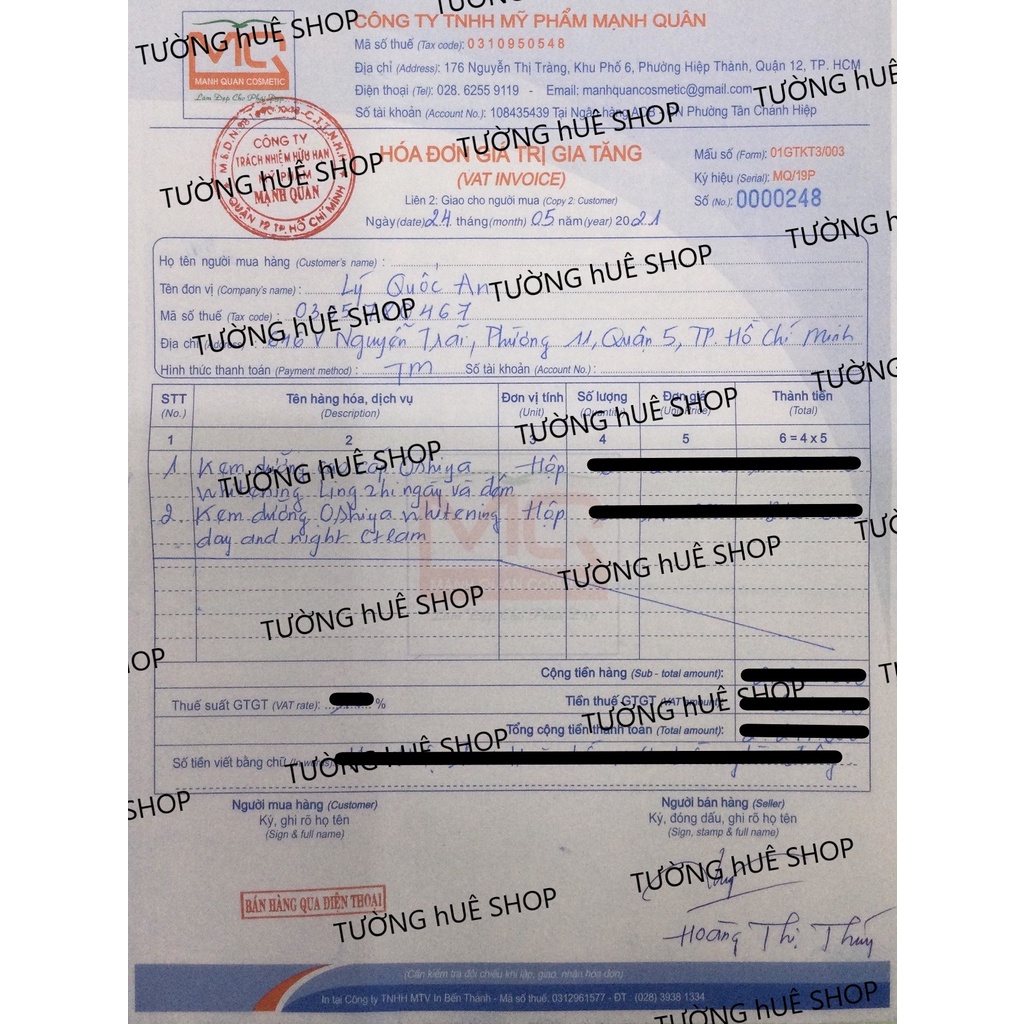 CÔNG TY TNHH MỸ PHẨM MẠNH QUÂN
Mã số thuế (Tax code): 0310950548
Địa chỉ (Address): 176 Nguyễn Thị Tràng, Khu Phố 6, Phường Hiệp Thành, Quận 12, TP. HCM
Điện thoại (Tel): 028. 6255 9119 - Email: manhquancosmetic@gmail.com
Số tài khoản (Account No.): 108435439 Tại Ngân hàng ACB Phường Tân Chánh Hiệp
MQ
MANH QUAN COSMETIC
Làm Đẹp Cho Phái Đẹp
CÔNG TY
TRÁCH NHIỆM HỮU HẠN
MỸ PHẨM
MẠNH QUÂN
QUẬN 12 TP. HỒ CHÍ MINH
HÓA ĐƠN GIÁ TRỊ GIA TĂNG
(VAT INVOICE)
Liên 2: Giao cho người mua (Copy 2: Customer)
Ngày (date) 24 tháng (month) 05 năm (year) 2021
Mẫu số (Form): 01GTKT3/003
Ký hiệu (Serial): MQ/19P
Số (No.): 0000248
Họ tên người mua hàng (Customer's name) :
Tên đơn vị (Company's name) : Lý Quốc An
Mã số thuế (Tax code) : 467
Địa chỉ Nguyễn Trãi, Phường 11, Quận 5, TP. Hồ Chí Minh
Hình thức thanh toán (Payment method) : TM Số tài khoản (Account No.) :
STT (No.) Tên hàng hóa, dịch vụ (Description) Đơn vị tính (Unit) Số lượng Đơn giá Thành tiền (Total)
1 2 4 5 6 = 4 x 5
1 Kem dưỡng Oshiya Hộp
Whitening Lingzhi ngày và đêm
2 Kem dưỡng Oshiya Whitening Hộp
day and night cream
MQ
MANH QUAN COSMETIC
Cộng tiền hàng (Sub - total amount):
Thuế suất GTGT (VAT rate): % Tiền thuế GTGT
Tổng cộng tiền thanh toán (Total amount):
Số tiền viết bằng chữ
Người mua hàng (Customer)
Ký, ghi rõ họ tên
(Sign & full name)
Người bán hàng (Seller)
Ký, đóng dấu, ghi rõ họ tên
(Sign, stamp & full name)
BÁN HÀNG QUA ĐIỆN THOẠI
Hoàng Thị Thúy
(Cần kiểm tra đối chiếu khi lập, giao, nhận hóa đơn)
In tại Công ty TNHH MTV In Bến Thành - Mã số thuế: 0312961577 - ĐT : (028) 3938 1334
TƯỜNG hUÊ SHOP
TƯỜNG hUÊ
TƯỜNG hUÊ SHOP
TƯỜNG hUÊ SHOP
TƯỜNG h
TƯỜNG hUÊ SHOP
TƯỜNG hUÊ SHOP
TƯỜNG
TƯỜNG hUÊ SHOP
TƯỜNG hUÊ SHOP
TƯỜ
TƯỜNG hUÊ SHOP
TƯỜNG hUÊ SHOP
OP
TƯỜNG hUÊ SHOP
TƯỜNG hUÊ SHOP
SHOP
TƯỜNG hUÊ SHOP
TƯỜNG hUÊ SHOP
TƯỜNG hUÊ SHOP